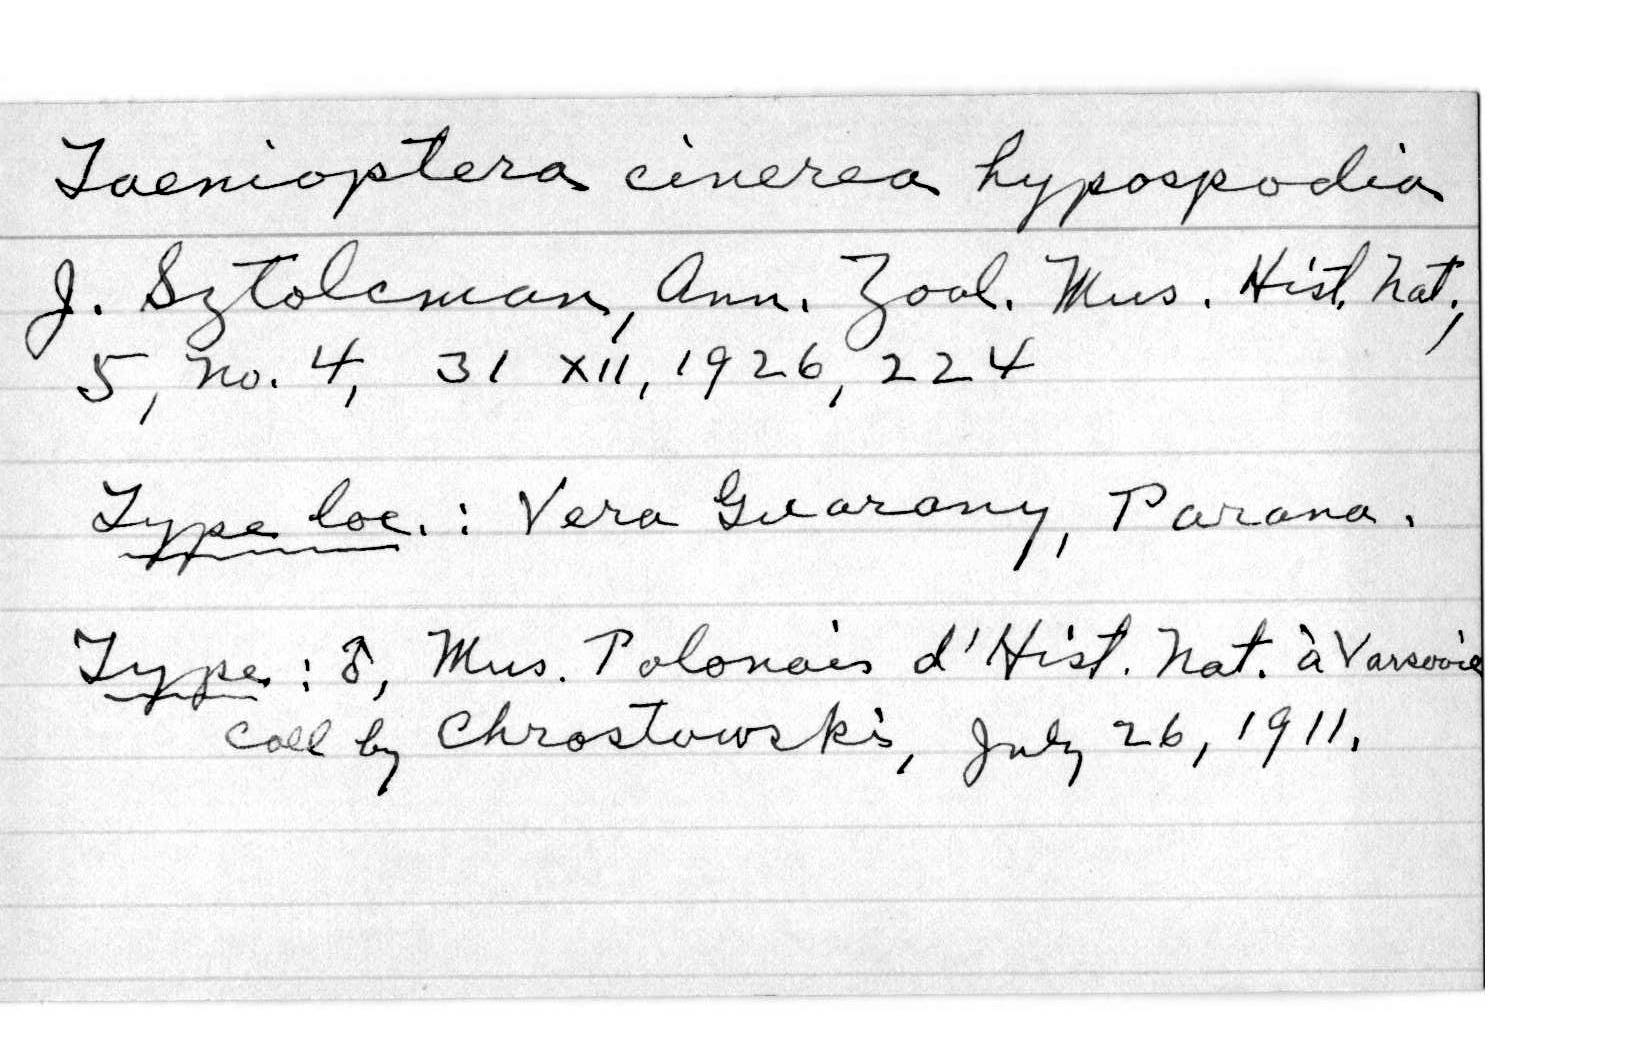 Taenioptera cinerea hypospodia
J. Sztolcman, Ann. Zool. Mus. Hist. Nat.,
5, no. 4, 31 XII, 1926, 224
Type loc. : Vera Guarany, Parana.
Type : ♂, Mus. Polonais d'Hist. Nat. à Varsovie
Coll by Chrostowski, July 26, 1911.